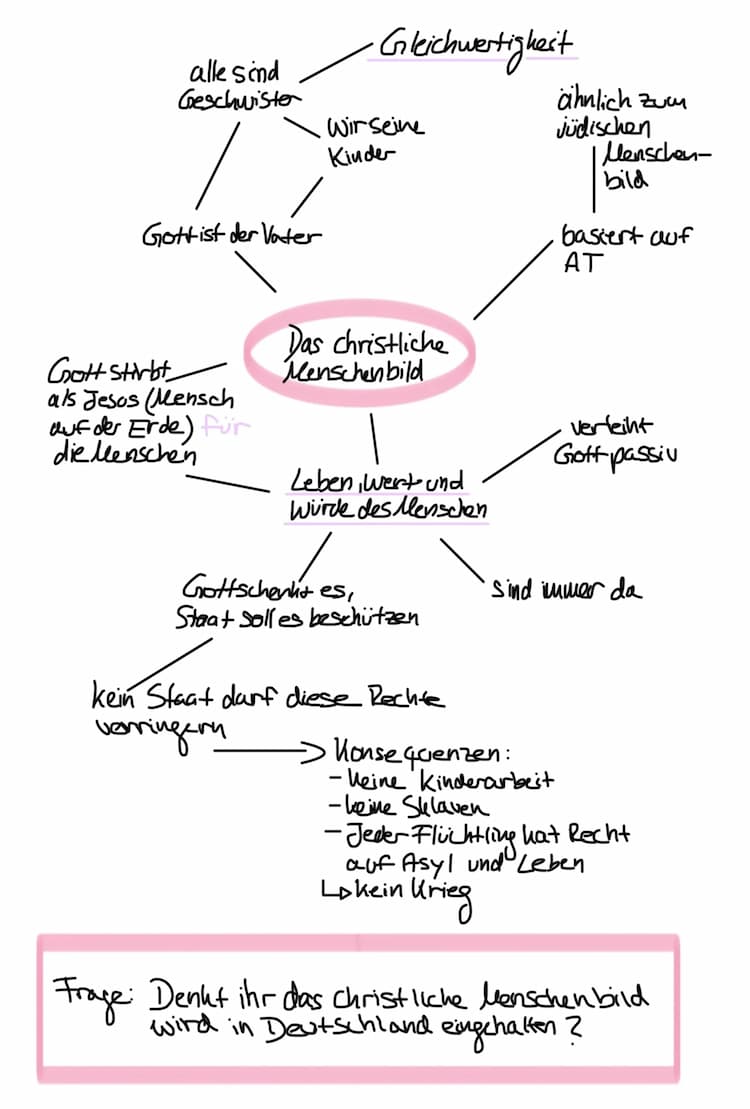 Gleichwertigkeit
alle sind
Geschwister
Wir seine
Kinder
ähnlich zum
jüdischen
Menschen-
bild
Gott ist der Vater
basiert auf
AT
Das christliche
Menschenbild
Gott stirbt
als Jesos (Mensch
auf der Erde) für
die Menschen
verleiht
Gott passiv
Leben, Wert und
Würde des Menschen
Gott schenkt es,
Staat soll es beschützen
sind immer da
kein Staat darf diese Rechte
verringern
Konsequenzen:
- keine Kinderarbeit
- keine Sklaven
- Jeder Flüchtling hat Recht
auf Asyl und Leben
↳ kein Krieg
Frage: Denkt ihr das christliche Menschenbild
wird in Deutschland eingehalten?